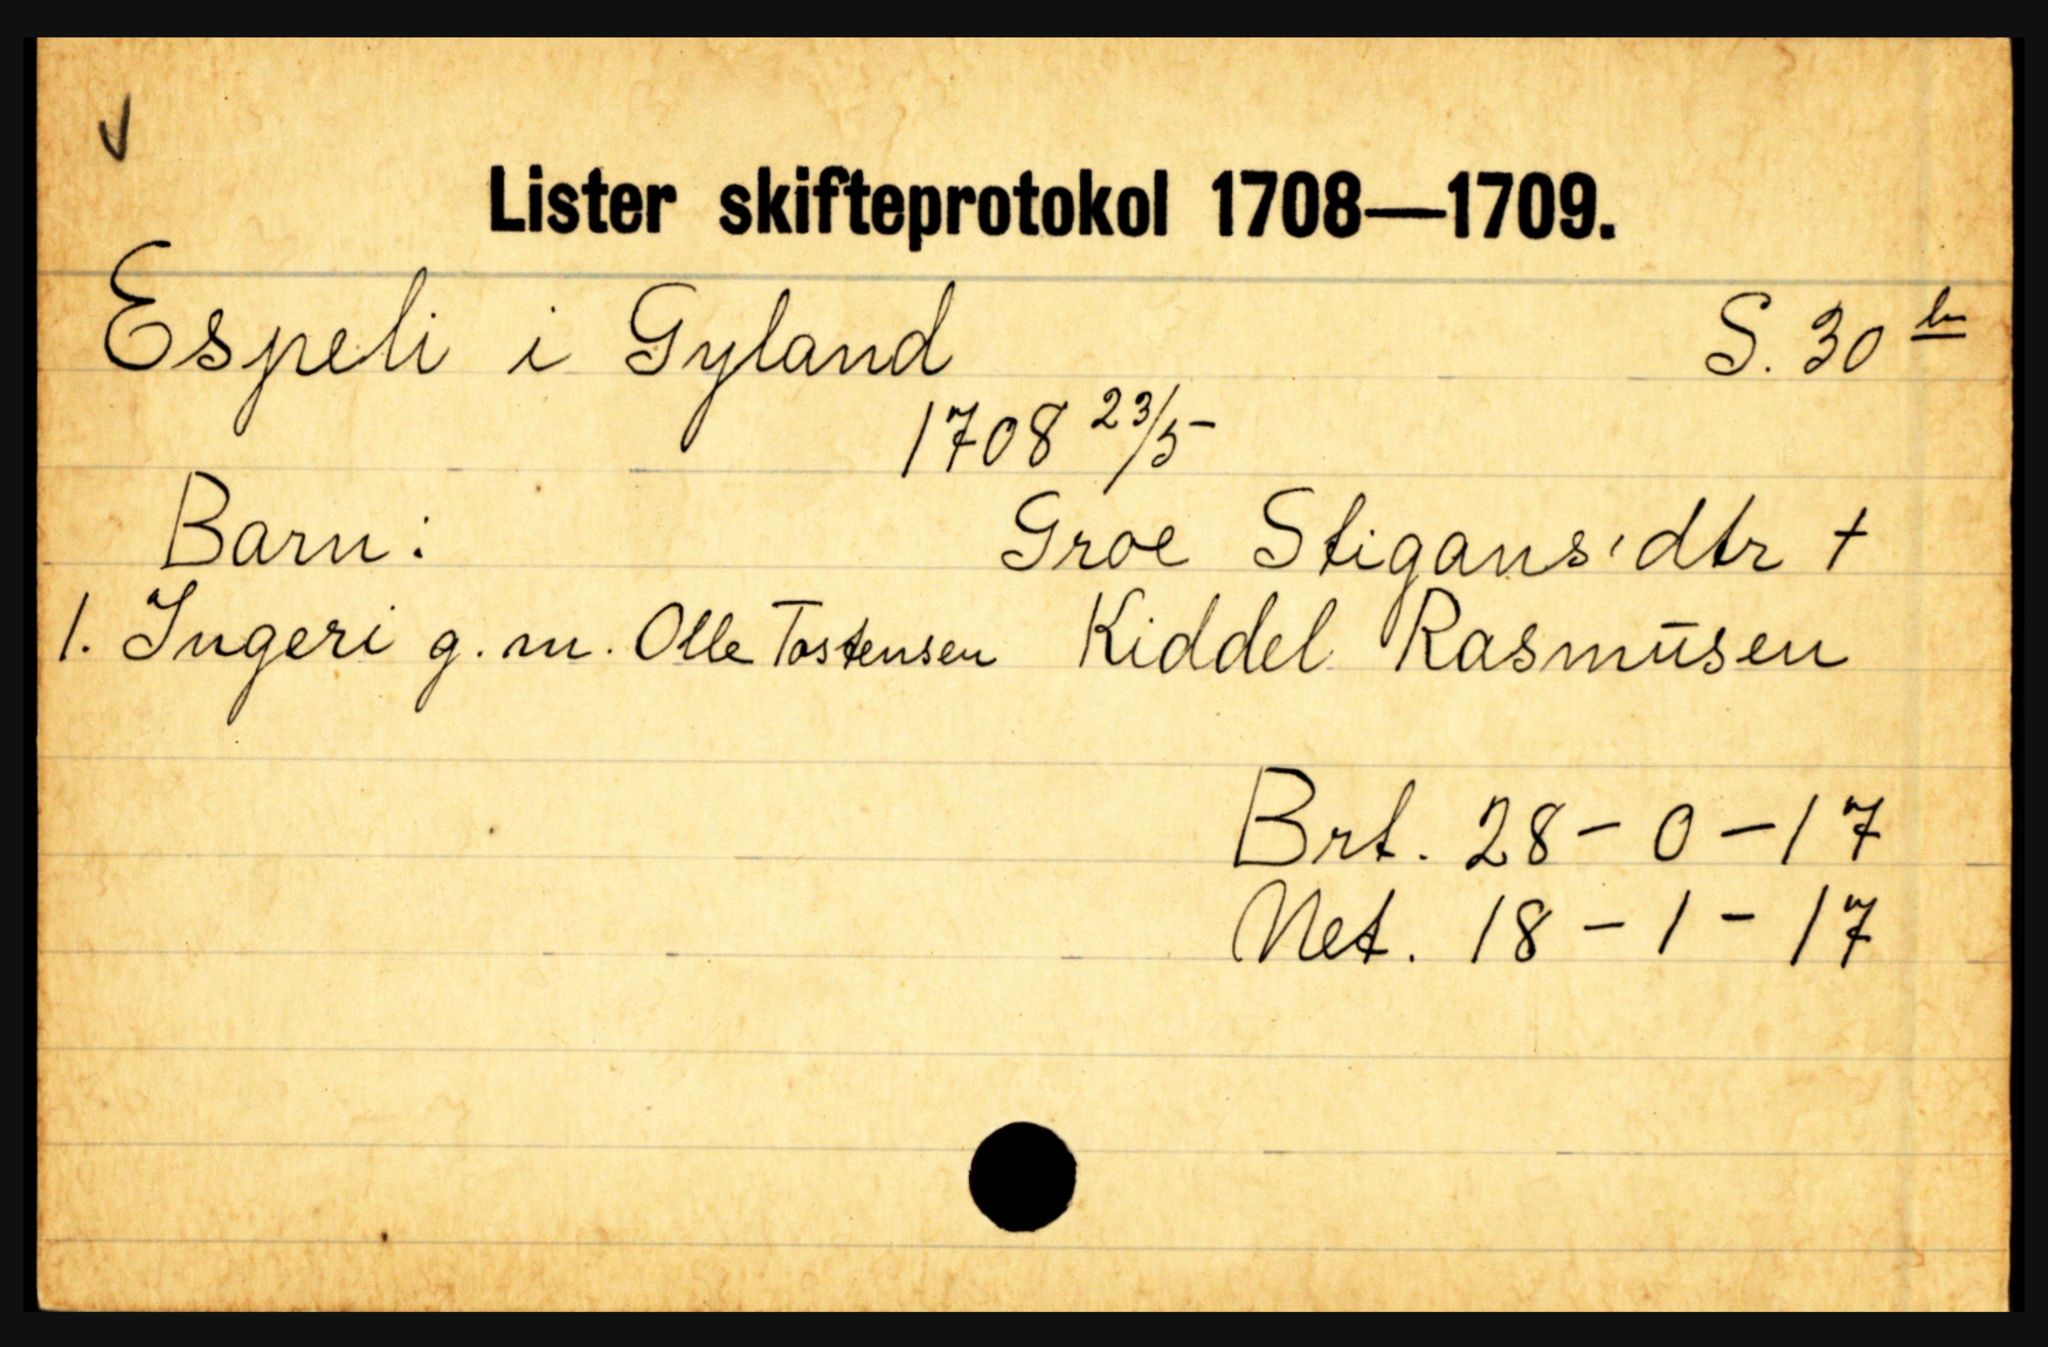 Lister skifteprotokol 1708—1709.
Espeli i Gyland S. 30 b
1708 23/5
Barn: Groe Stigans'dtr †
1. Ingeri g. m. Olle Tostensen Kiddel Rasmūsen
Brt. 28 – 0 – 17
Net. 18 – 1 – 17